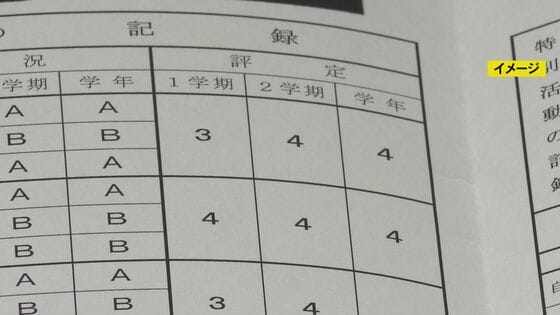 の記録
イメージ
況 評定
学期 学年 1学期 2学期 学年
A A 3 4 4
B B
A A
A A 4 4 4
B B
B B
A A 3 4
B B
特別活動の記録